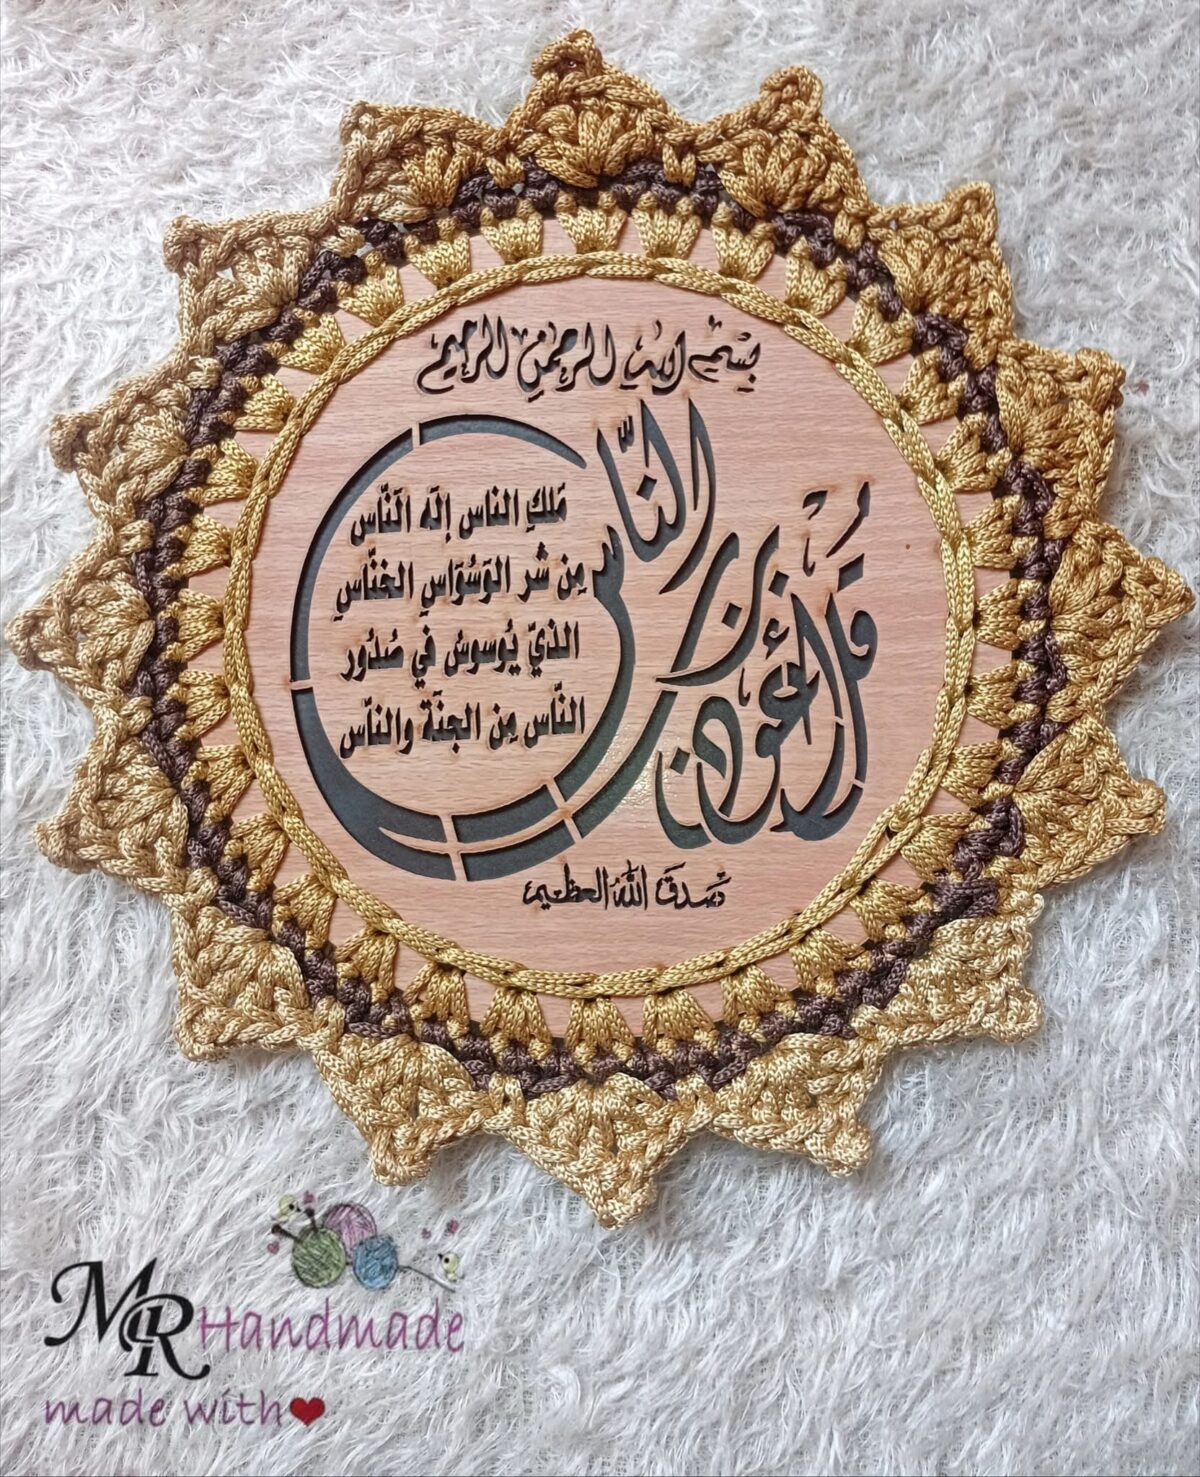 بِسْمِ اللهِ الرحمنِ الرحيم
قُلْ أعُوذُ بِرَبِّ النَّاسِ
مَلكِ الناس إلَه النَّاسِ
مِن شر الوَسْوَاسِ الخنَّاسِ
الذيّ يُوسوسُ في صُدُور
النَّاس مِن الجنَّة والناَس
صَدقَ اللَّهُ العظيم
MR Handmade
made with❤